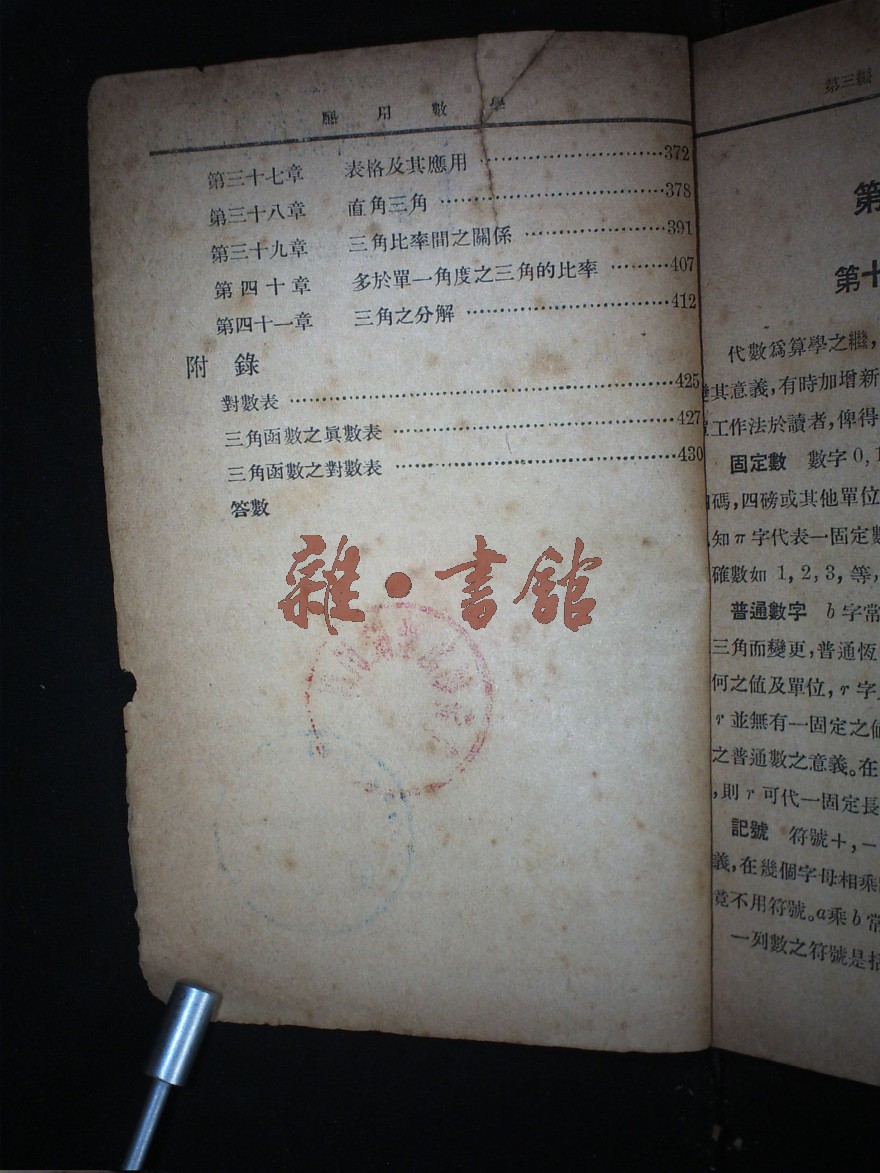 應用數學
第三十七章 表格及其應用 ……………………372
第三十八章 直角三角 ……………………………378
第三十九章 三角比率間之關係 ………………391
第四十章 多於單一角度之三角的比率 ………407
第四十一章 三角之分解 …………………………412
附錄
對數表 ………………………………………………425
三角函數之眞數表 …………………………………427
三角函數之對數表 …………………………………430
答數
雜·書館
第三編
第
第十
代數爲算學之繼,
其意義,有時加增新
工作法於讀者,俾得
固定數 數字 0, 1
碼,四磅或其他單位
知 π 字代表一固定數
確數如 1, 2, 3, 等,
普通數字 b 字常
三角而變更,普通恆
何之值及單位, r 字
r 並無有一固定之值
之普通數之意義。在
,則 r 可代一固定長
記號 符號+,−
義,在幾個字母相乘
竟不用符號。a乘 b 常
一列數之符號是括